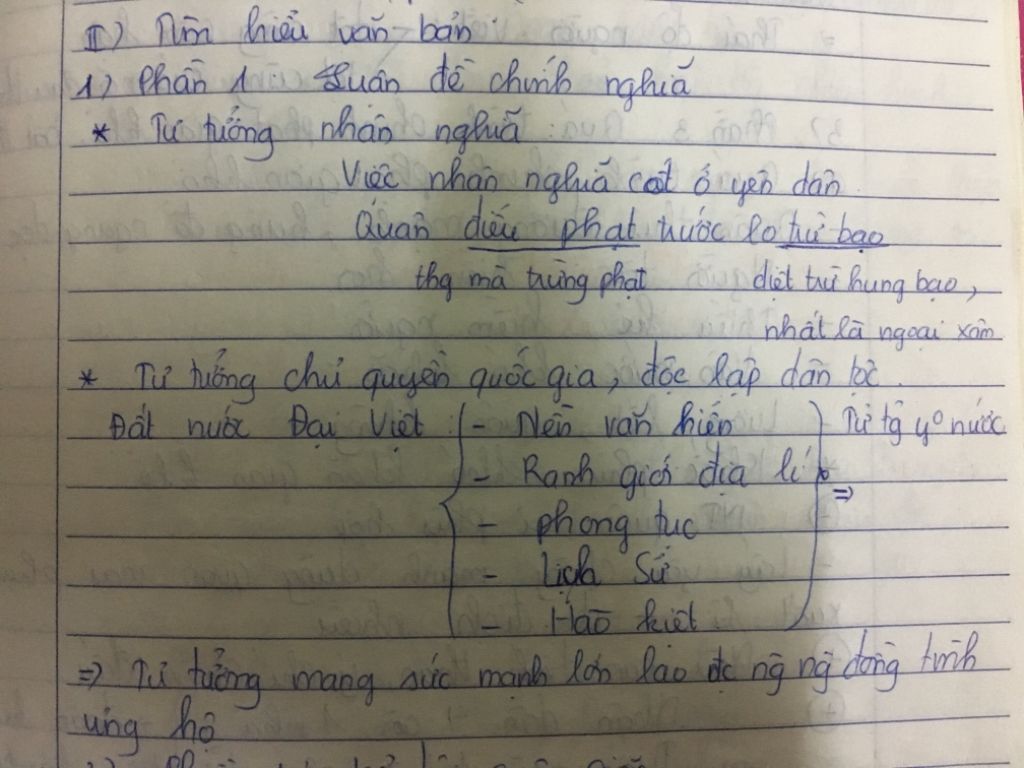 II) Tìm hiểu văn bản
1) Phần 1 Luận đề chính nghĩa
* Tư tưởng nhân nghĩa
Việc nhân nghĩa cốt ở yên dân
Quân điếu phạt trước lo trừ bạo
thg mà trừng phạt diệt trừ hung bạo,
nhất là ngoại xâm
* Tư tưởng chủ quyền quốc gia, độc lập dân tộc.
Đất nước Đại Việt : - Nền văn hiến Tư tg yº nước
- Ranh giới địa lí =>
- phong tục
- Lịch Sử
- Hào kiệt
=> Tư tưởng mang sức mạnh lớn lao đc ng ng đồng tình
ủng hộ